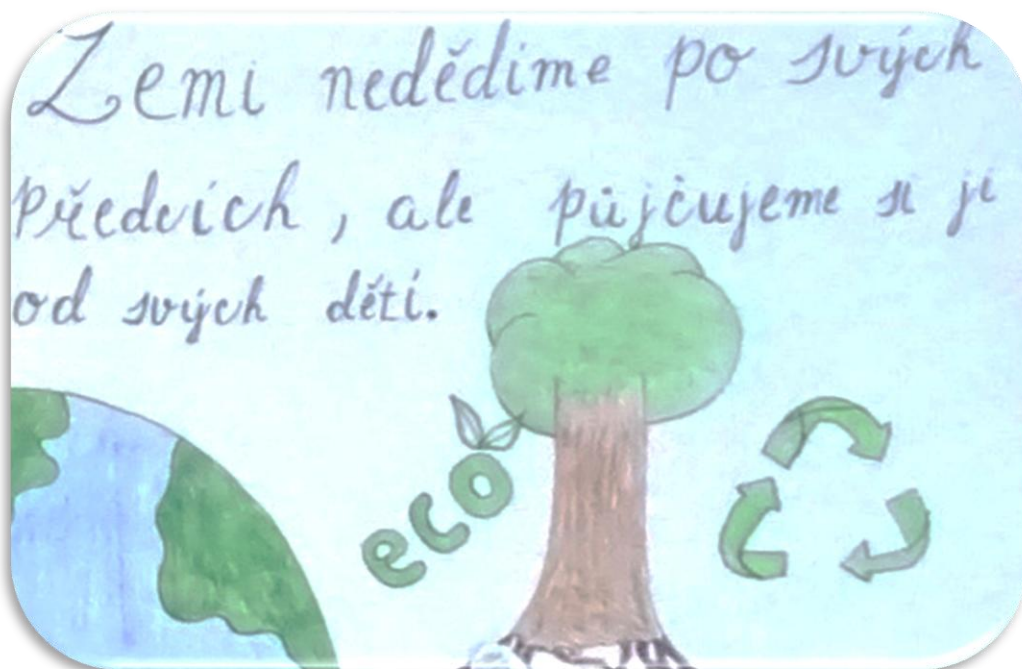 Zemi nedědíme po svých
předcích, ale půjčujeme si ji
od svých dětí.
eco